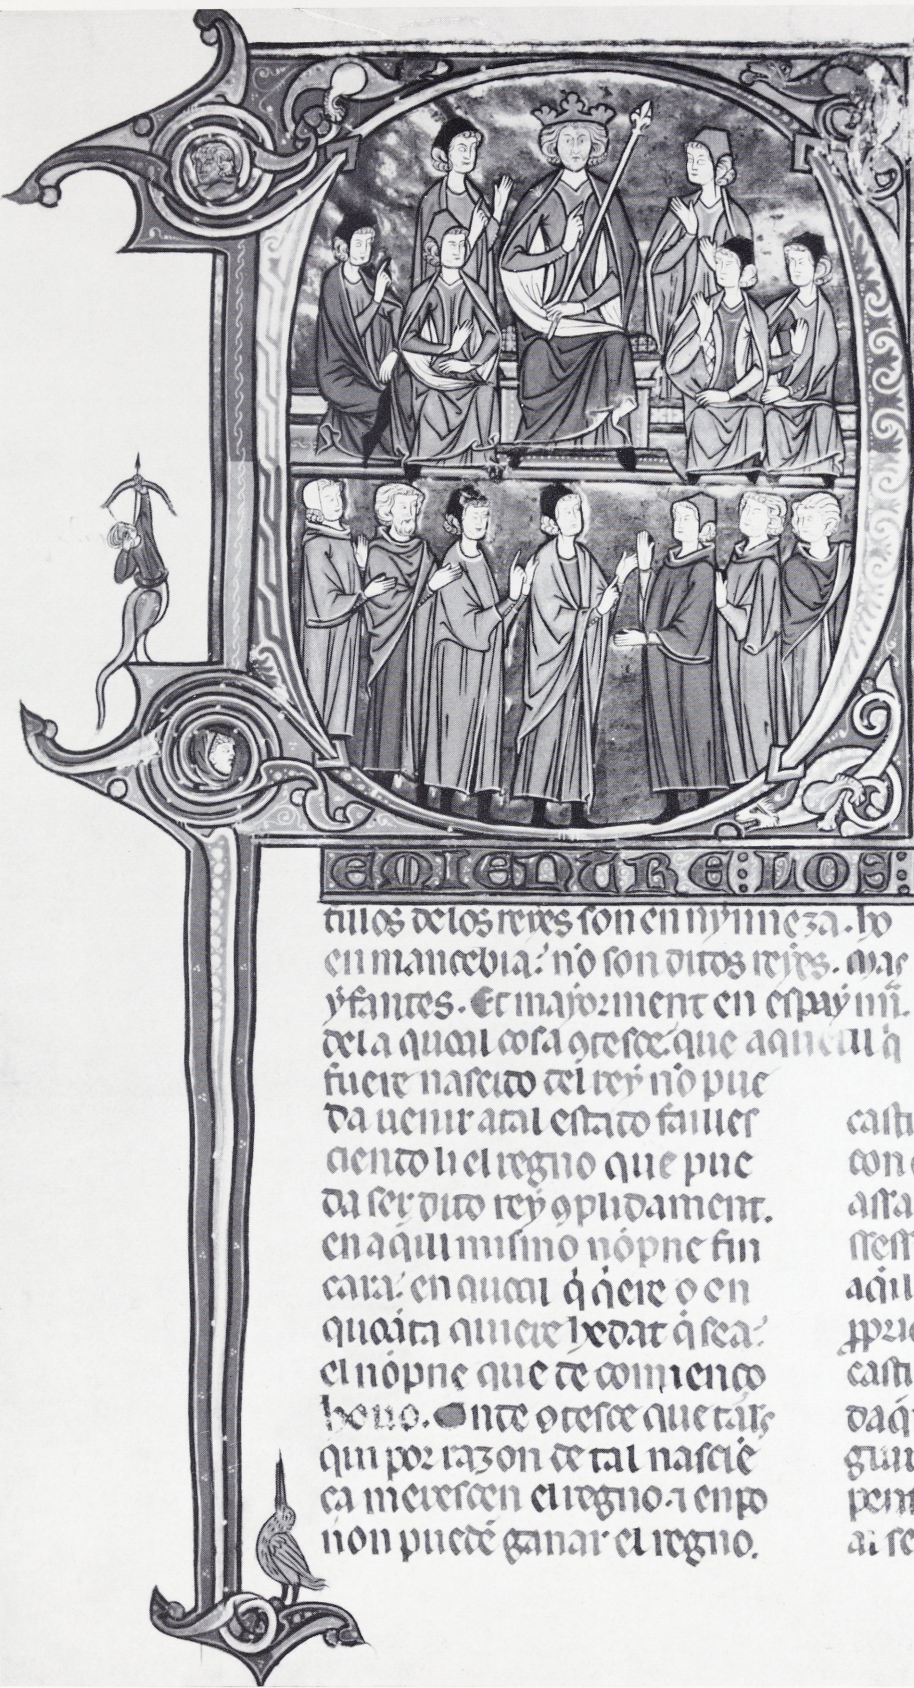 EMIENTRE: LOS:
fillos delos reyes son en nynneza. ho
en mancebia: no son ditos reyes. mas
yfantes. Et mayorment en espaynna.
dela qual cosa 9tesce. que aquell q̇
fuere nascido del rey no pue
da uenir atal estado failles
ciendo li el regno que pue
da ser dito rey 9plidament.
en aqui mismo nōpne fin
cara: en qual q̇ q̇ere o en
quāta quiere hedat q̇ sea:
el nōpne que de comienço
houo. Onde 9tesce que tales
qui por razon de tal nasciē
ça merescen el regno. ⁊ enpo
non puedē ganar el regno.
casti
con
assa
aq̇ll
casti
daq̇
pent